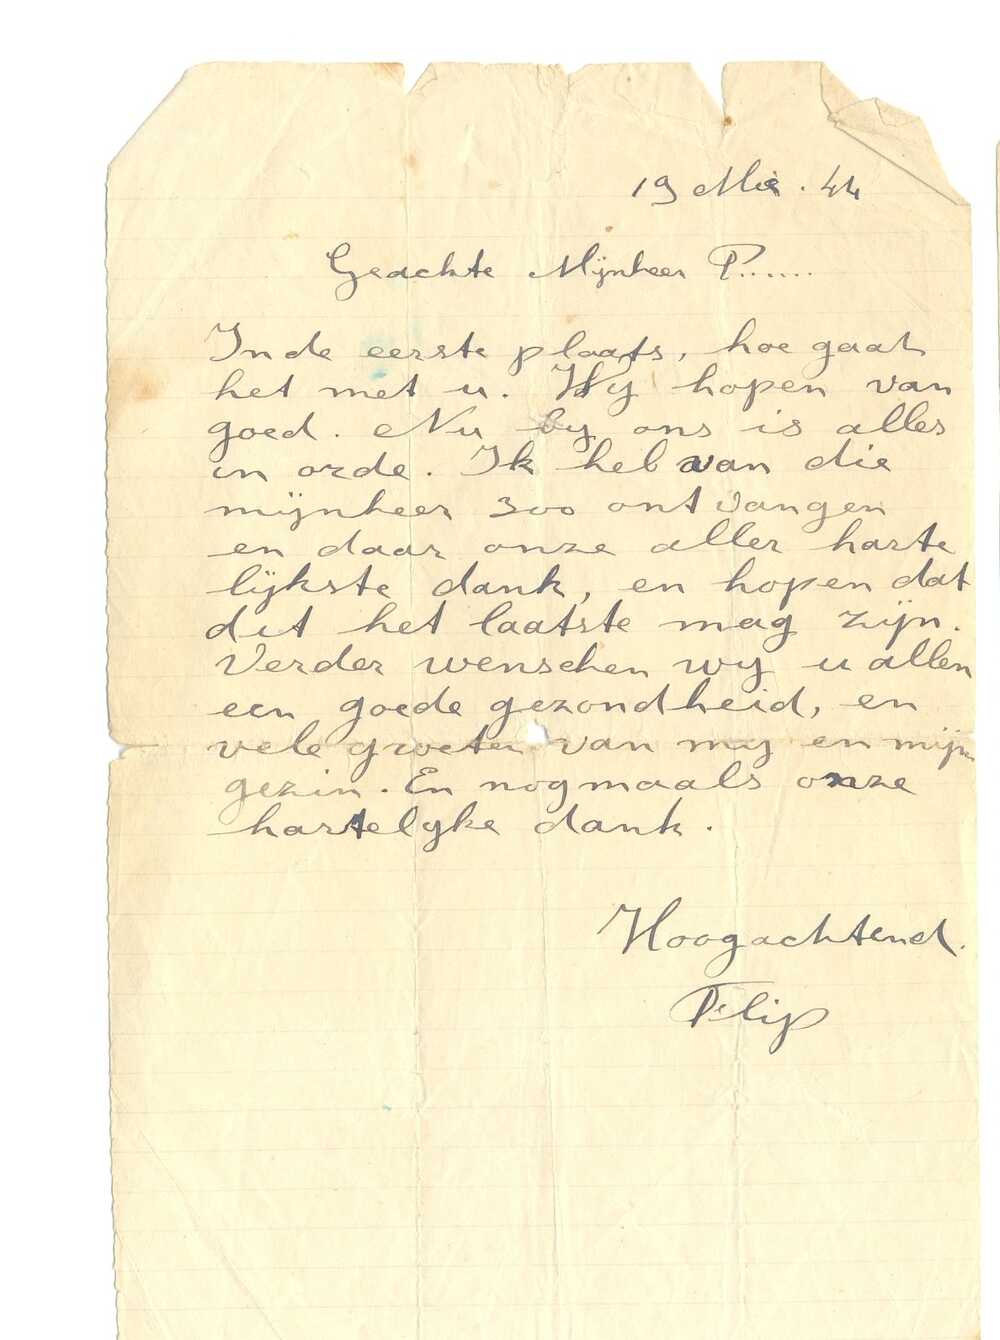 19 Mei. 44
Geachte Mijnheer P......
In de eerste plaats, hoe gaat
het met u. Wij hopen van
goed. Nu by ons is alles
in orde. Ik heb van die
mijnheer 300 ontvangen
en daar onze aller harte
lijkste dank, en hopen dat
dit het laatste mag zijn.
Verder wenschen wy u allen
een goede gezondheid, en
vele groeten van my en mijn
gezin. En nogmaals onze
hartelyke dank.
Hoogachtend.
Flip